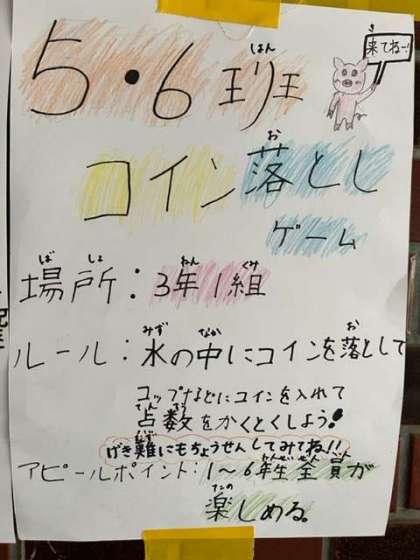 来てねー!
5・6班
コイン落とし
ゲーム
場所：3年1組
ルール：水の中にコインを落として
コップなどにコインを入れて
点数をかくとくしよう!
げき難にもちょうせんしてみてね!!
アピールポイント：1～6年生全員が
楽しめる。